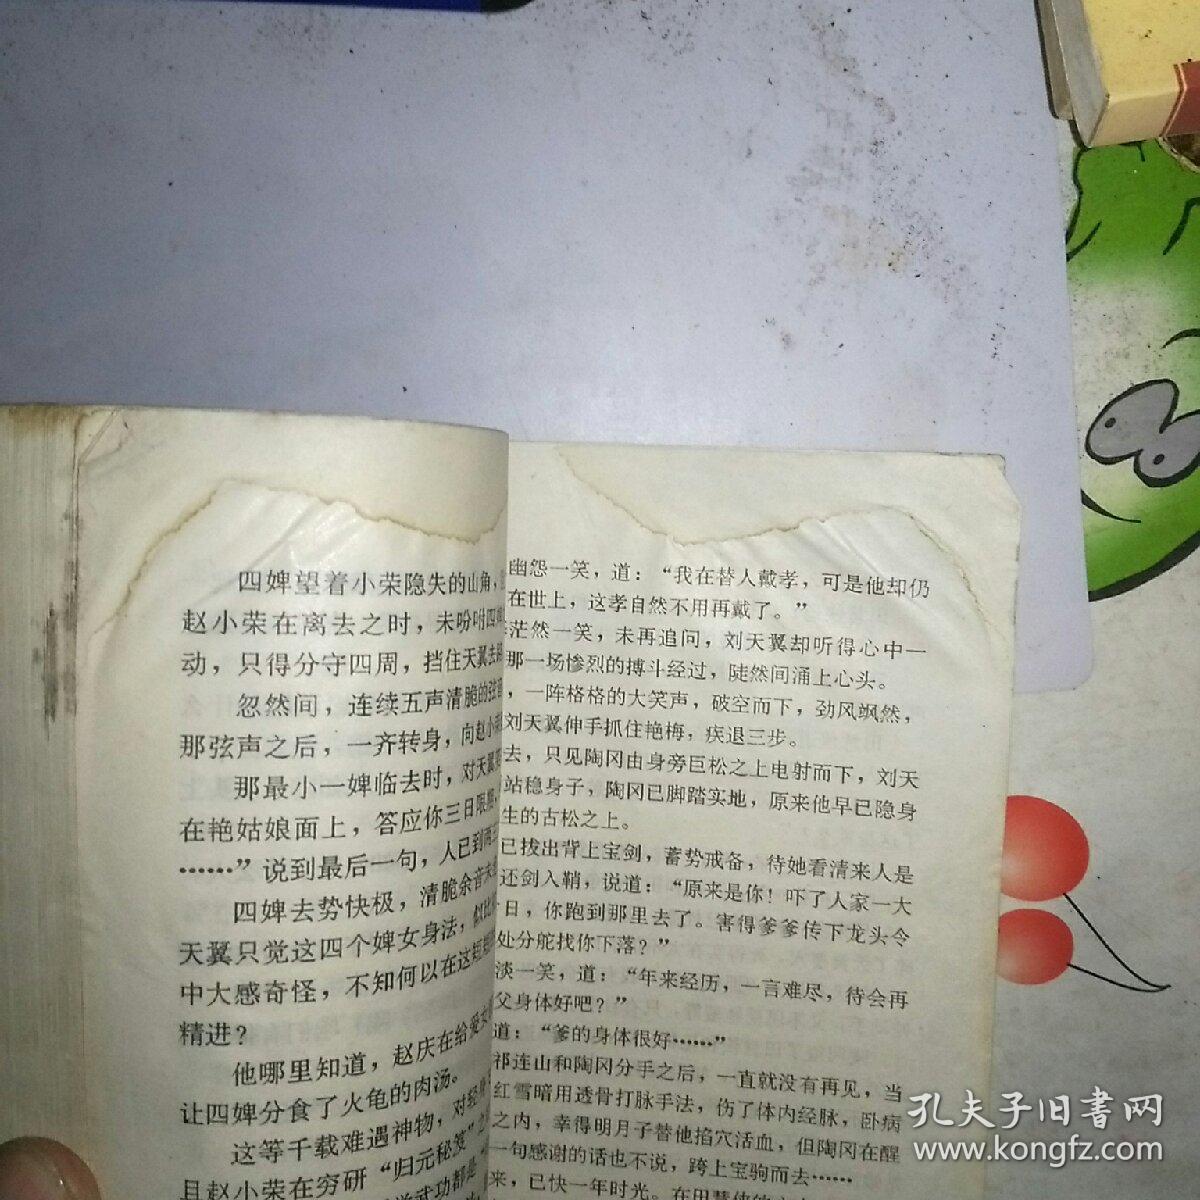 四婢望着小荣隐失的山角，
赵小荣在离去之时，未吩咐四婢
动，只得分守四周，挡住天翼去
忽然间，连续五声清脆的弦音
那弦声之后，一齐转身，向赵小荣
那最小一婢临去时，对天翼
在艳姑娘面上，答应你三日限期，
……”说到最后一句，人已到两三
四婢去势快极，清脆余音未
天翼只觉这四个婢女身法，似比
中大感奇怪，不知何以在这短短
精进？
他哪里知道，赵庆在给爱女
让四婢分食了火龟的肉汤。
这等千载难遇神物，对经
且赵小荣在穷研“归元秘笈”之
武功都是
幽怨一笑，道：“我在替人戴孝，可是他却仍
在世上，这孝自然不用再戴了。”
茫然一笑，未再追问，刘天翼却听得心中一
那一场惨烈的搏斗经过，陡然间涌上心头。
，一阵格格的大笑声，破空而下，劲风飒然，
刘天翼伸手抓住艳梅，疾退三步。
去，只见陶冈由身旁巨松之上电射而下，刘天
站稳身子，陶冈已脚踏实地，原来他早已隐身
生的古松之上。
已拔出背上宝剑，蓄势戒备，待她看清来人是
还剑入鞘，说道：“原来是你！吓了人家一大
日，你跑到那里去了。害得爹爹传下龙头令
处分舵找你下落？”
淡一笑，道：“年来经历，一言难尽，待会再
父身体好吧？”
道：“爹的身体很好……”
祁连山和陶冈分手之后，一直就没有再见，当
红雪暗用透骨打脉手法，伤了体内经脉，卧病
之内，幸得明月子替他掐穴活血，但陶冈在醒
一句感谢的话也不说，跨上宝驹而去……
来，已快一年时光。在田慧
孔夫子旧书网
www.kongfz.com